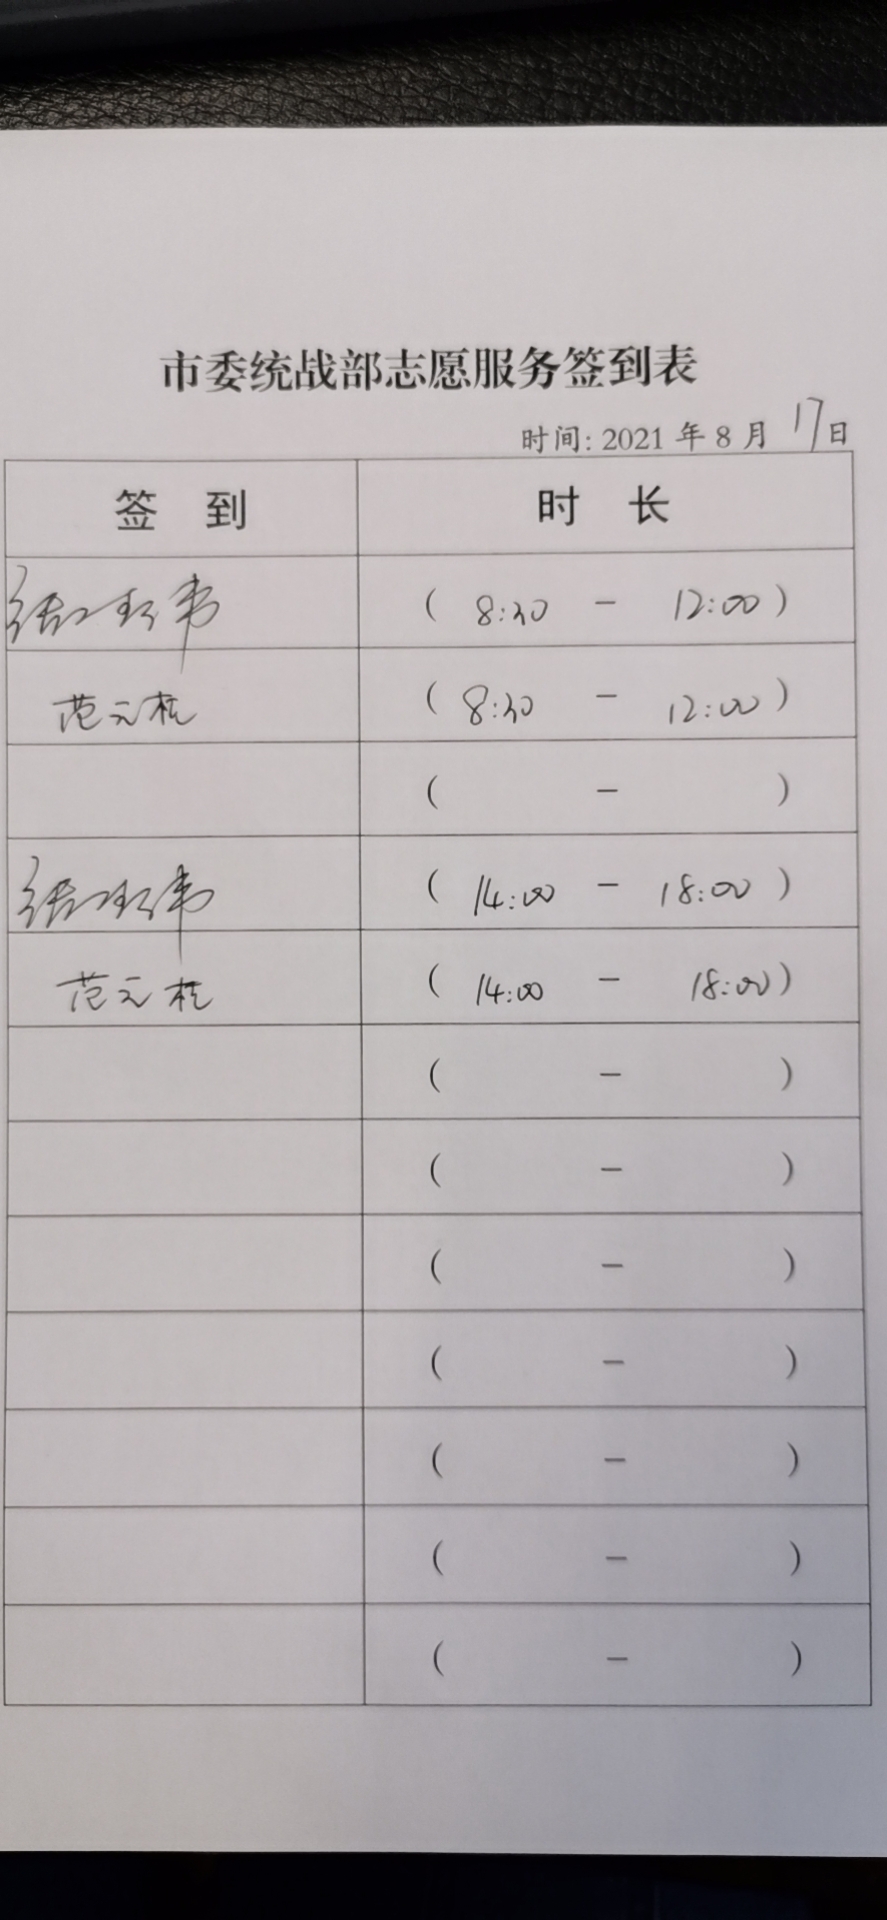 市委统战部志愿服务签到表
时间: 2021 年 8 月 17日
签 到 时 长
( 8:30 - 12:00 )
范元 ( 8:30 - 12:00 )
( - )
( 14:00 - 18:00 )
范元 ( 14:00 - 18:00 )
( - )
( - )
( - )
( - )
( - )
( - )
( - )